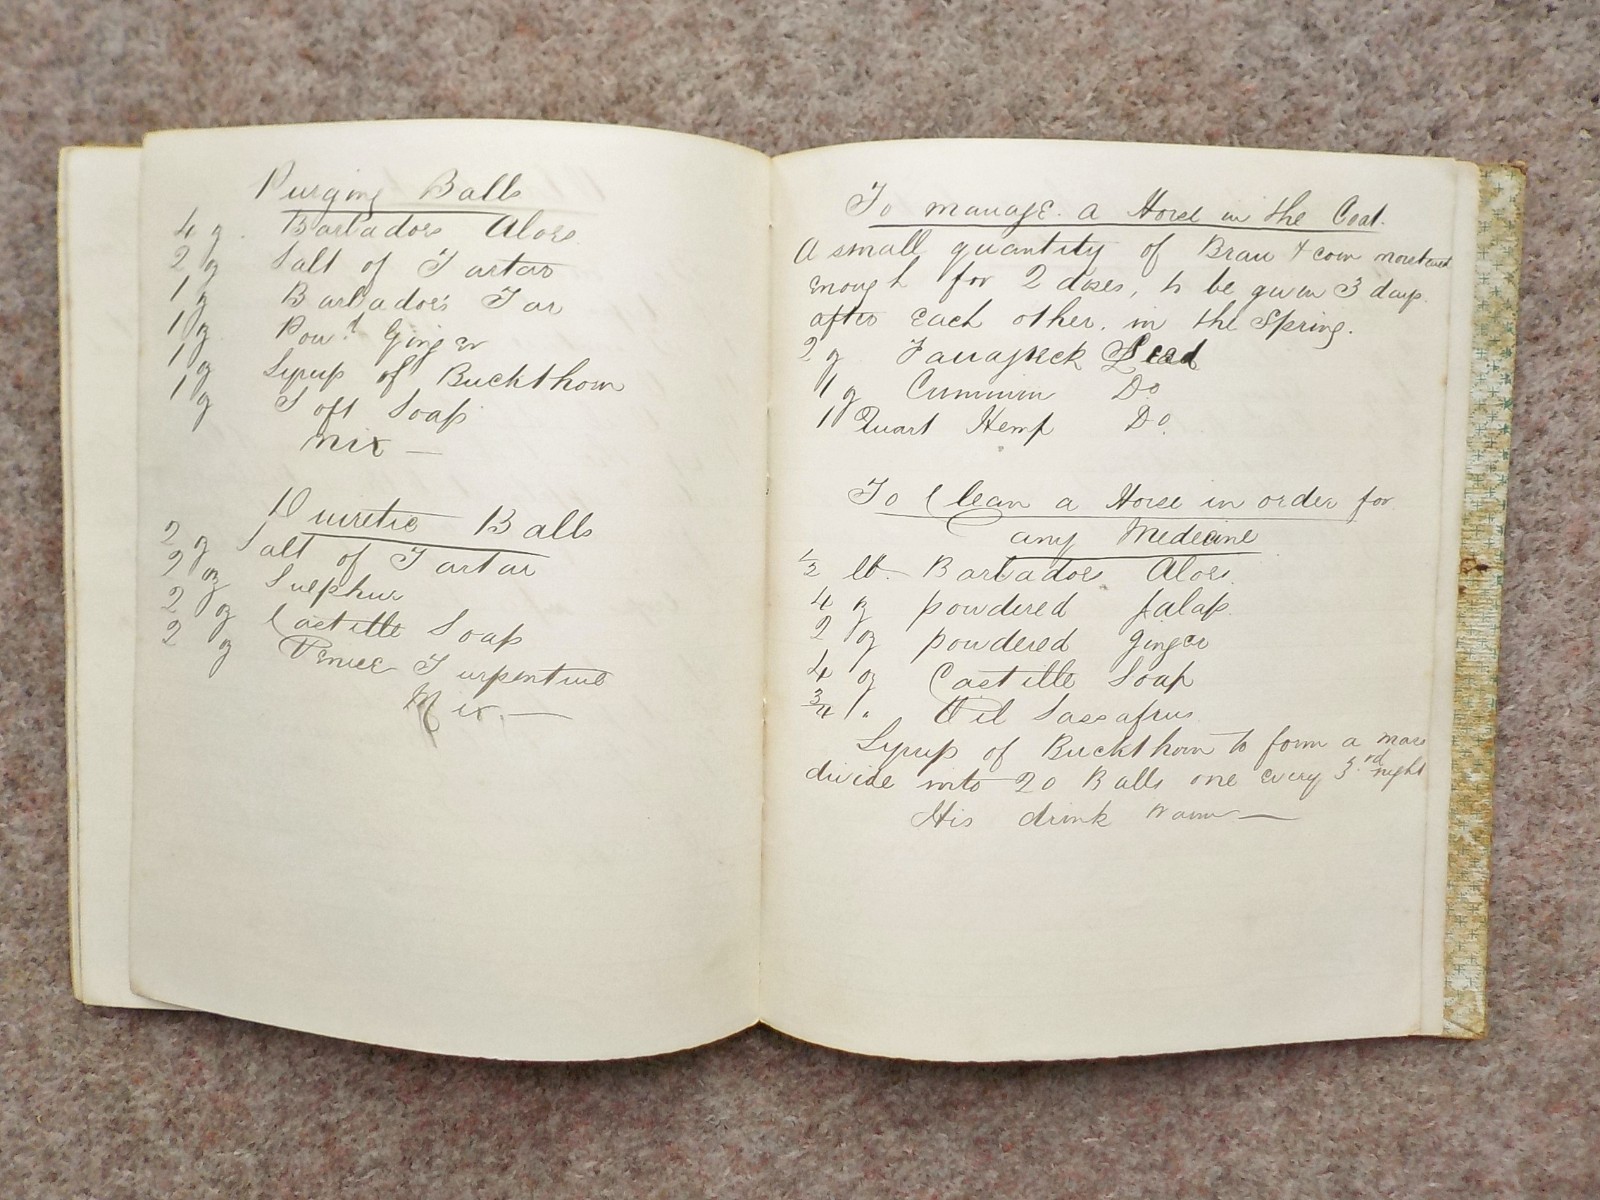 Purging Balls
4 oz. Barbadoes Aloes
2 oz Salt of Tartar
1 oz Barbadoe's Tar
1 oz Powd Ginger
1 oz Syrup of Buckthorn
1 oz Soft Soap
Mix —
Diuretic Balls
2 oz Salt of Tartar
2 oz Sulphur
2 oz Castille Soap
2 oz Venice Turpentine
Mix. —
To manage a Horse in the Coat.
A small quantity of Bran & corn moistened
enough for 2 doses, to be given 3 days
after each other. in the Spring.
2 oz Seed
1 oz Cummin Do
1 Quart Hemp Do.
To Clean a Horse in order for
any Medecine
1/2 lb. Barbadoes Aloes.
4 oz powdered Jalap.
2 oz powdered ginger
4 oz Castille Soap
3/4 " Oil Sassafrus
Syrup of Buckthorn to form a mass
divide into 20 Balls one every 3rd night
His drink warm —